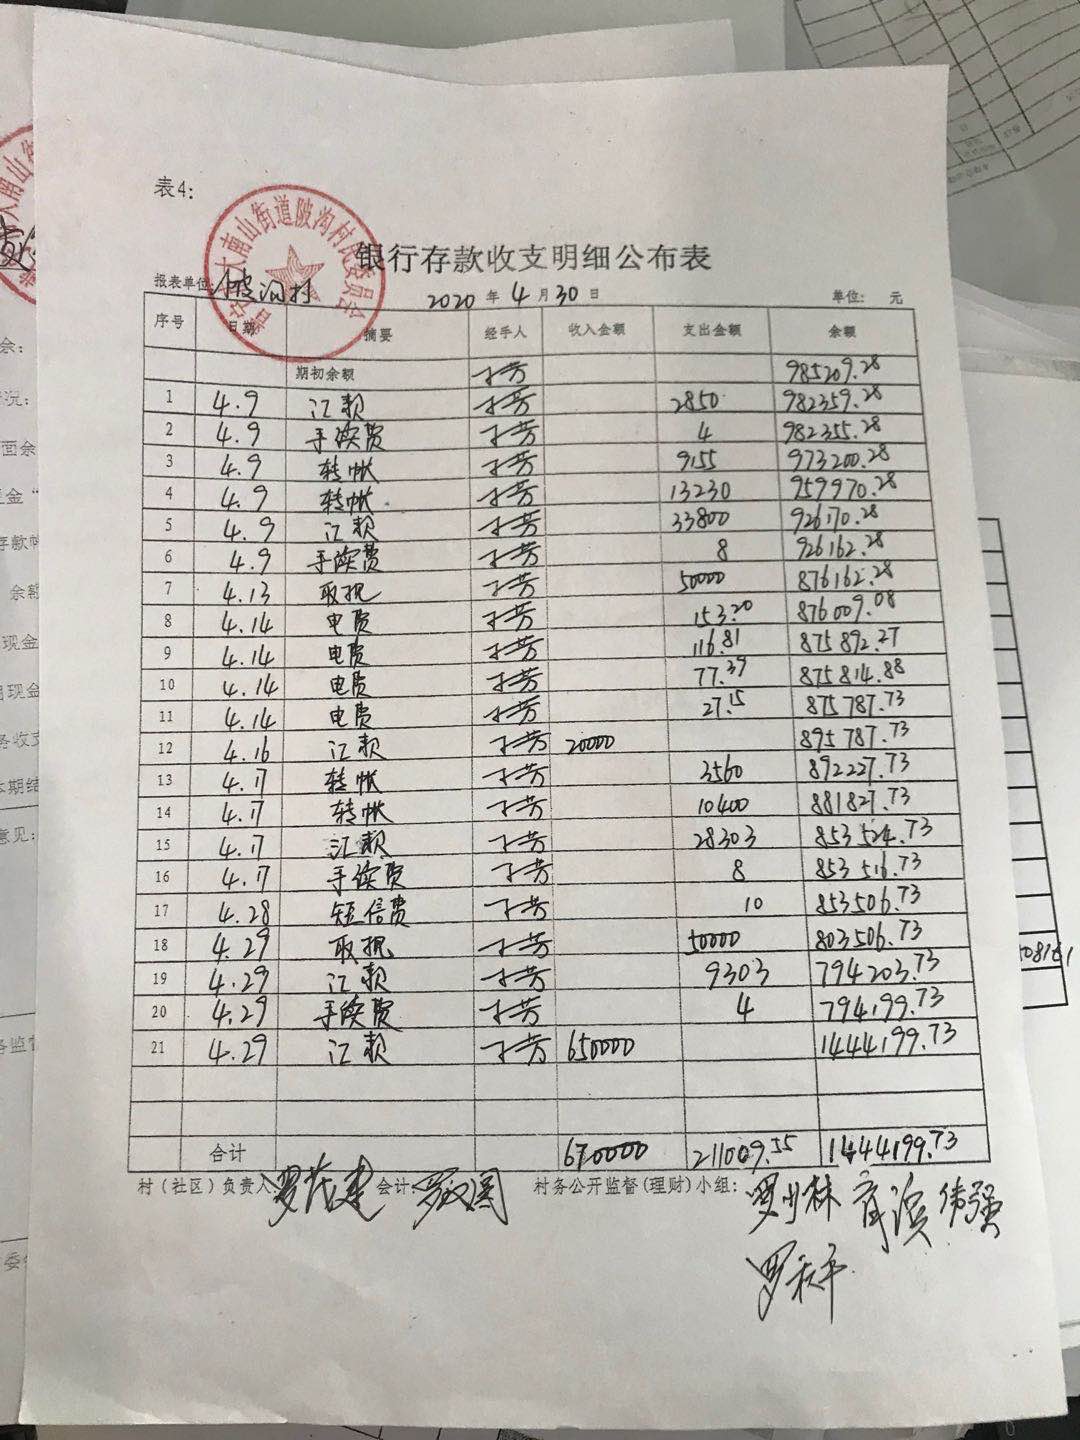 表4:
大庸山街道陂沟村民委员会
银行存款收支明细公布表
报表单位: 陂沟村 2020 年 4 月 30 日 单位: 元
序号 日期 摘要 经手人 收入金额 支出金额 余额
期初余额 985209.28
1 4.9 汇款 2850 982359.28
2 4.9 手续费 4 982355.28
3 4.9 转帐 9155 973200.28
4 4.9 转帐 13230 959970.28
5 4.9 汇款 33800 926170.28
6 4.9 手续费 8 926162.28
7 4.13 取现 50000 876162.28
8 4.14 电费 153.20 876009.08
9 4.14 电费 116.81 875892.27
10 4.14 电费 77.39 875814.88
11 4.14 电费 27.15 875787.73
12 4.16 汇款 20000 895787.73
13 4.17 转帐 3560 892227.73
14 4.17 转帐 10400 881827.73
15 4.17 汇款 28303 853524.73
16 4.17 手续费 8 853516.73
17 4.28 短信费 10 853506.73
18 4.29 取现 50000 803506.73
19 4.29 汇款 9303 794203.73
20 4.29 手续费 4 794199.73
21 4.29 汇款 650000 1444199.73
合计 670000 211009.55 1444199.73
村(社区)负责人 会计: 村务公开监督(理财)小组: